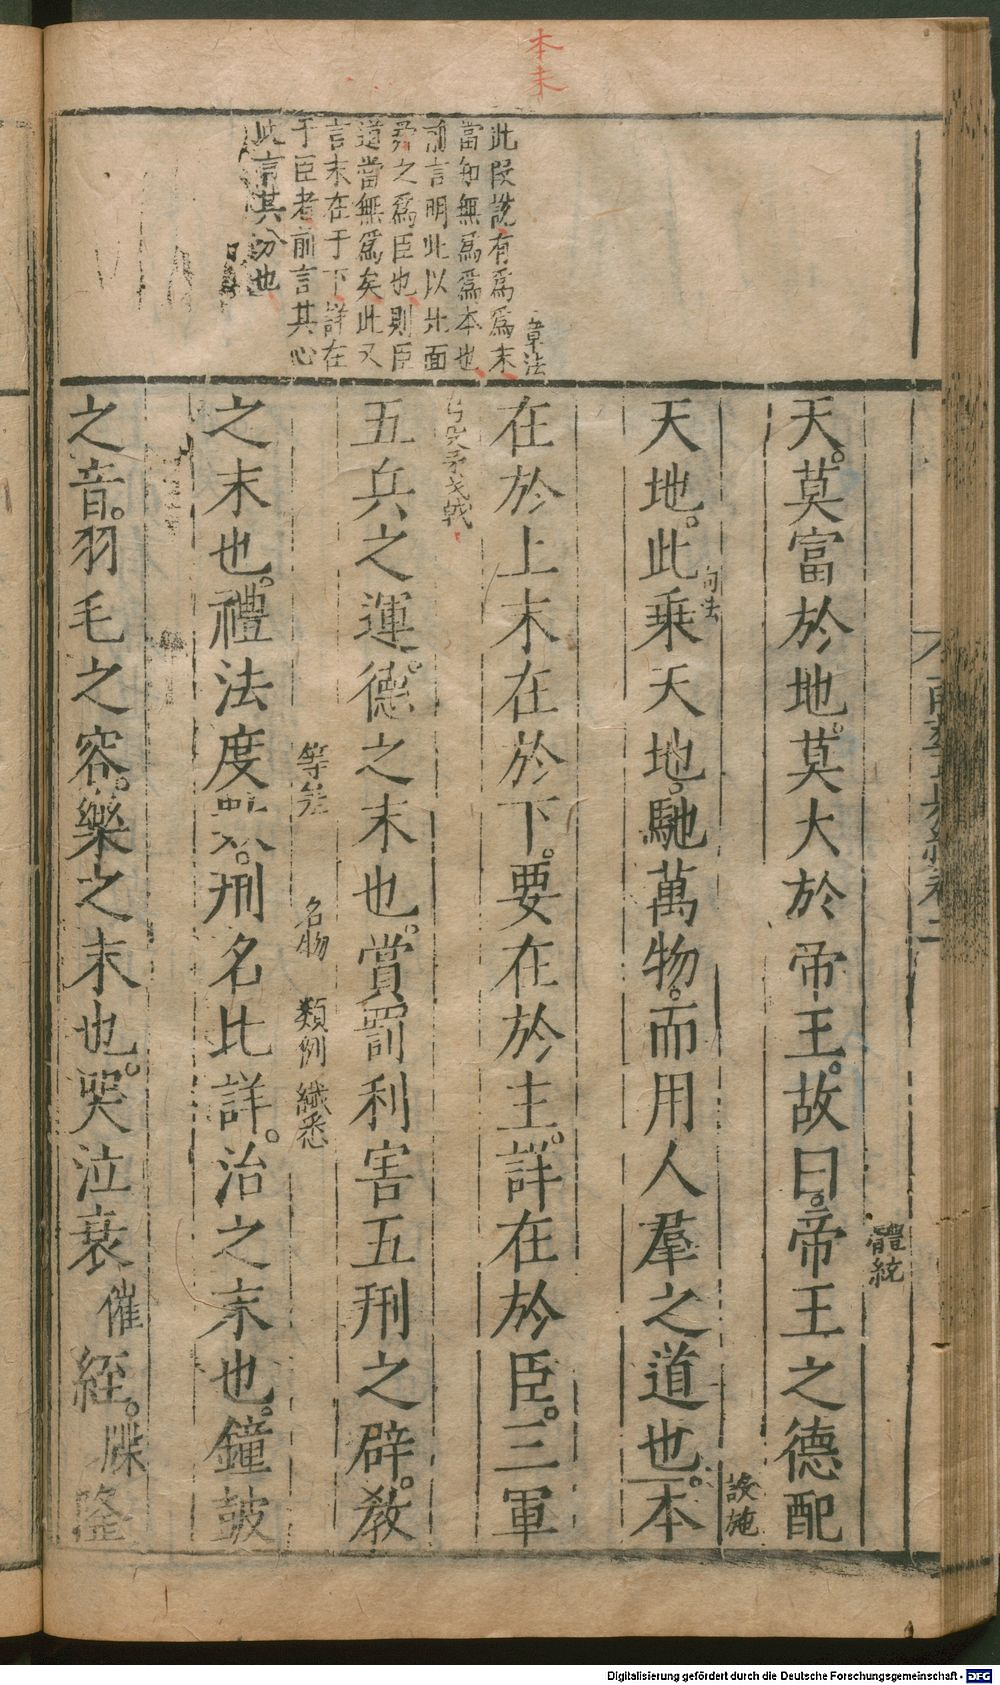 本末
章法
此段說有爲爲末
當知無爲爲本也
前言明此以北面
舜之爲臣也則臣
道當無爲矣此又
言末在于下詳在
于臣者前言其心
此言其分也
體統
天莫富於地莫大於帝王故曰帝王之德配
句法
設施
天地此乗天地馳萬物而用人羣之道也本
在於上末在於下要在於主詳在於臣三軍
弓殳矛戈戟
五兵之運德之末也賞罰利害五刑之辟敎
等差
名物
類例
纎悉
之末也禮法度刑名比詳治之末也鐘鼓
之音羽毛之容樂之末也哭泣衰
催
絰
牒
隆
Digitalisierung gefördert durch die Deutsche Forschungsgemeinschaft - DFG